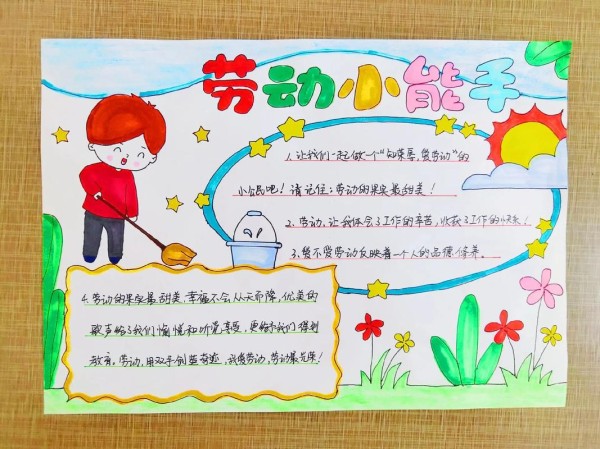 劳动小能手
1.让我们一起做一个“知荣辱,爱劳动”的
小公民吧!请记住:劳动的果实最甜美!
2.劳动,让我体会了工作的辛苦,收获了工作的快乐!
3.爱不爱劳动反映着一个人的品德修养。
4.劳动的果实最甜美,幸福不会从天而降,优美的
歌声给了我们愉悦和听觉享受,更给予我们得到
教育。劳动,用双手创造奇迹,我爱劳动,劳动最光荣!